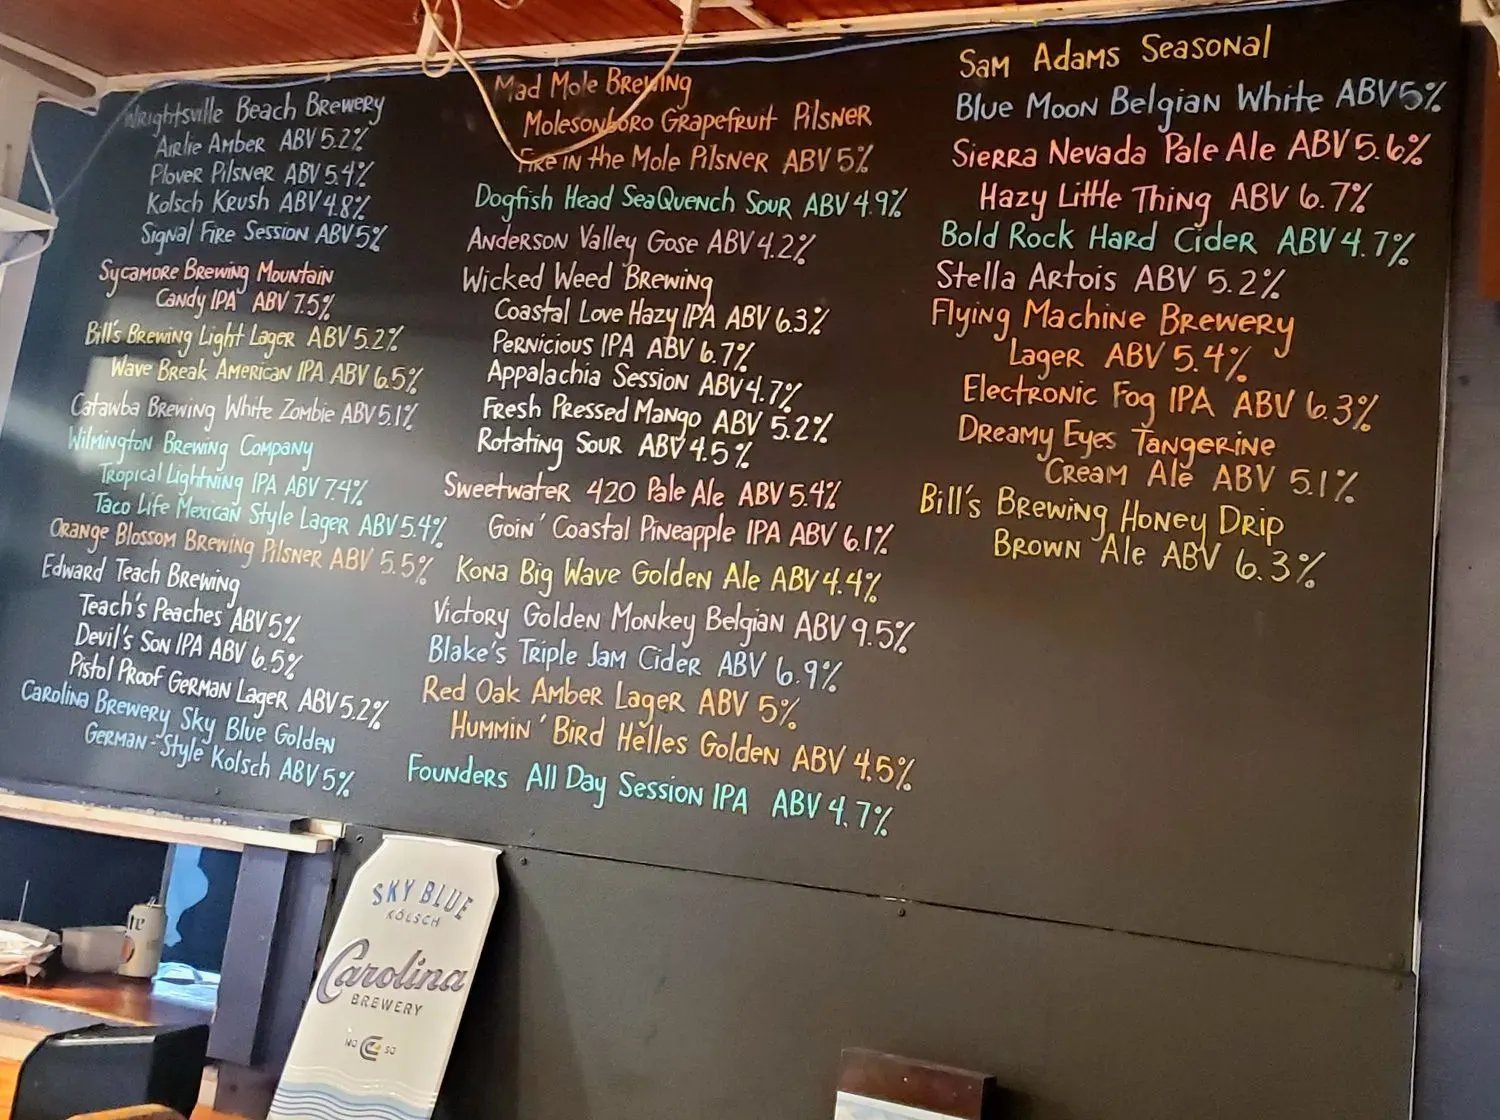 Wrightsville Beach Brewery
Airlie Amber ABV 5.2%
Plover Pilsner ABV 5.4%
Kolsch Krush ABV 4.8%
Signal Fire Session ABV 5%
Sycamore Brewing Mountain
Candy IPA ABV 7.5%
Bill's Brewing Light Lager ABV 5.2%
Wave Break American IPA ABV 6.5%
Catawba Brewing White Zombie ABV 5.1%
Wilmington Brewing Company
Tropical Lightning IPA ABV 7.4%
Taco Life Mexican Style Lager ABV 5.4%
Orange Blossom Brewing Pilsner ABV 5.5%
Edward Teach Brewing
Teach's Peaches ABV 5%
Devil's Son IPA ABV 6.5%
Pistol Proof German Lager ABV 5.2%
Carolina Brewery Sky Blue Golden
German-Style Kolsch ABV 5%
Mad Mole Brewing
Molesonboro Grapefruit Pilsner
Fire in the Mole Pilsner ABV 5%
Dogfish Head SeaQuench Sour ABV 4.9%
Anderson Valley Gose ABV 4.2%
Wicked Weed Brewing
Coastal Love Hazy IPA ABV 6.3%
Pernicious IPA ABV 6.7%
Appalachia Session ABV 4.7%
Fresh Pressed Mango ABV 5.2%
Rotating Sour ABV 4.5%
Sweetwater 420 Pale Ale ABV 5.4%
Goin' Coastal Pineapple IPA ABV 6.1%
Kona Big Wave Golden Ale ABV 4.4%
Victory Golden Monkey Belgian ABV 9.5%
Blake's Triple Jam Cider ABV 6.9%
Red Oak Amber Lager ABV 5%
Hummin' Bird Helles Golden ABV 4.5%
Founders All Day Session IPA ABV 4.7%
Sam Adams Seasonal
Blue Moon Belgian White ABV 5%
Sierra Nevada Pale Ale ABV 5.6%
Hazy Little Thing ABV 6.7%
Bold Rock Hard Cider ABV 4.7%
Stella Artois ABV 5.2%
Flying Machine Brewery
Lager ABV 5.4%
Electronic Fog IPA ABV 6.3%
Dreamy Eyes Tangerine
Cream Ale ABV 5.1%
Bill's Brewing Honey Drip
Brown Ale ABV 6.3%
SKY BLUE
KÖLSCH
Carolina
BREWERY
NO SO